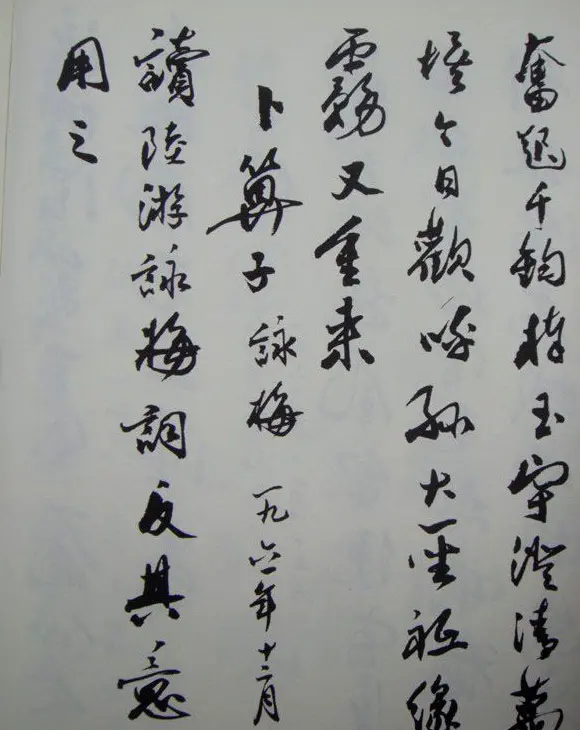 奮起千鈞棒玉宇澄清萬
埃今日歡呼孫大聖祗緣
霧又重来
卜算子 詠梅 一九六一年十二月
讀陸游詠梅詞反其意
用之